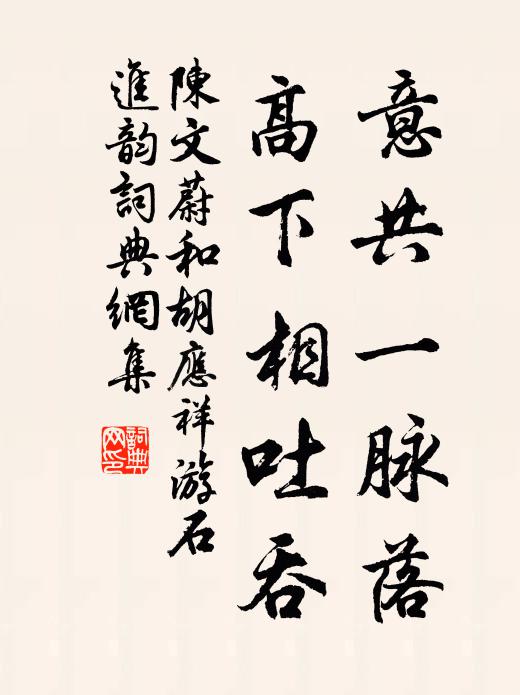 意共一脉落
高下相吐吞
陳文蔚和胡應祥游石
進韵詞典網集
詞典
网印